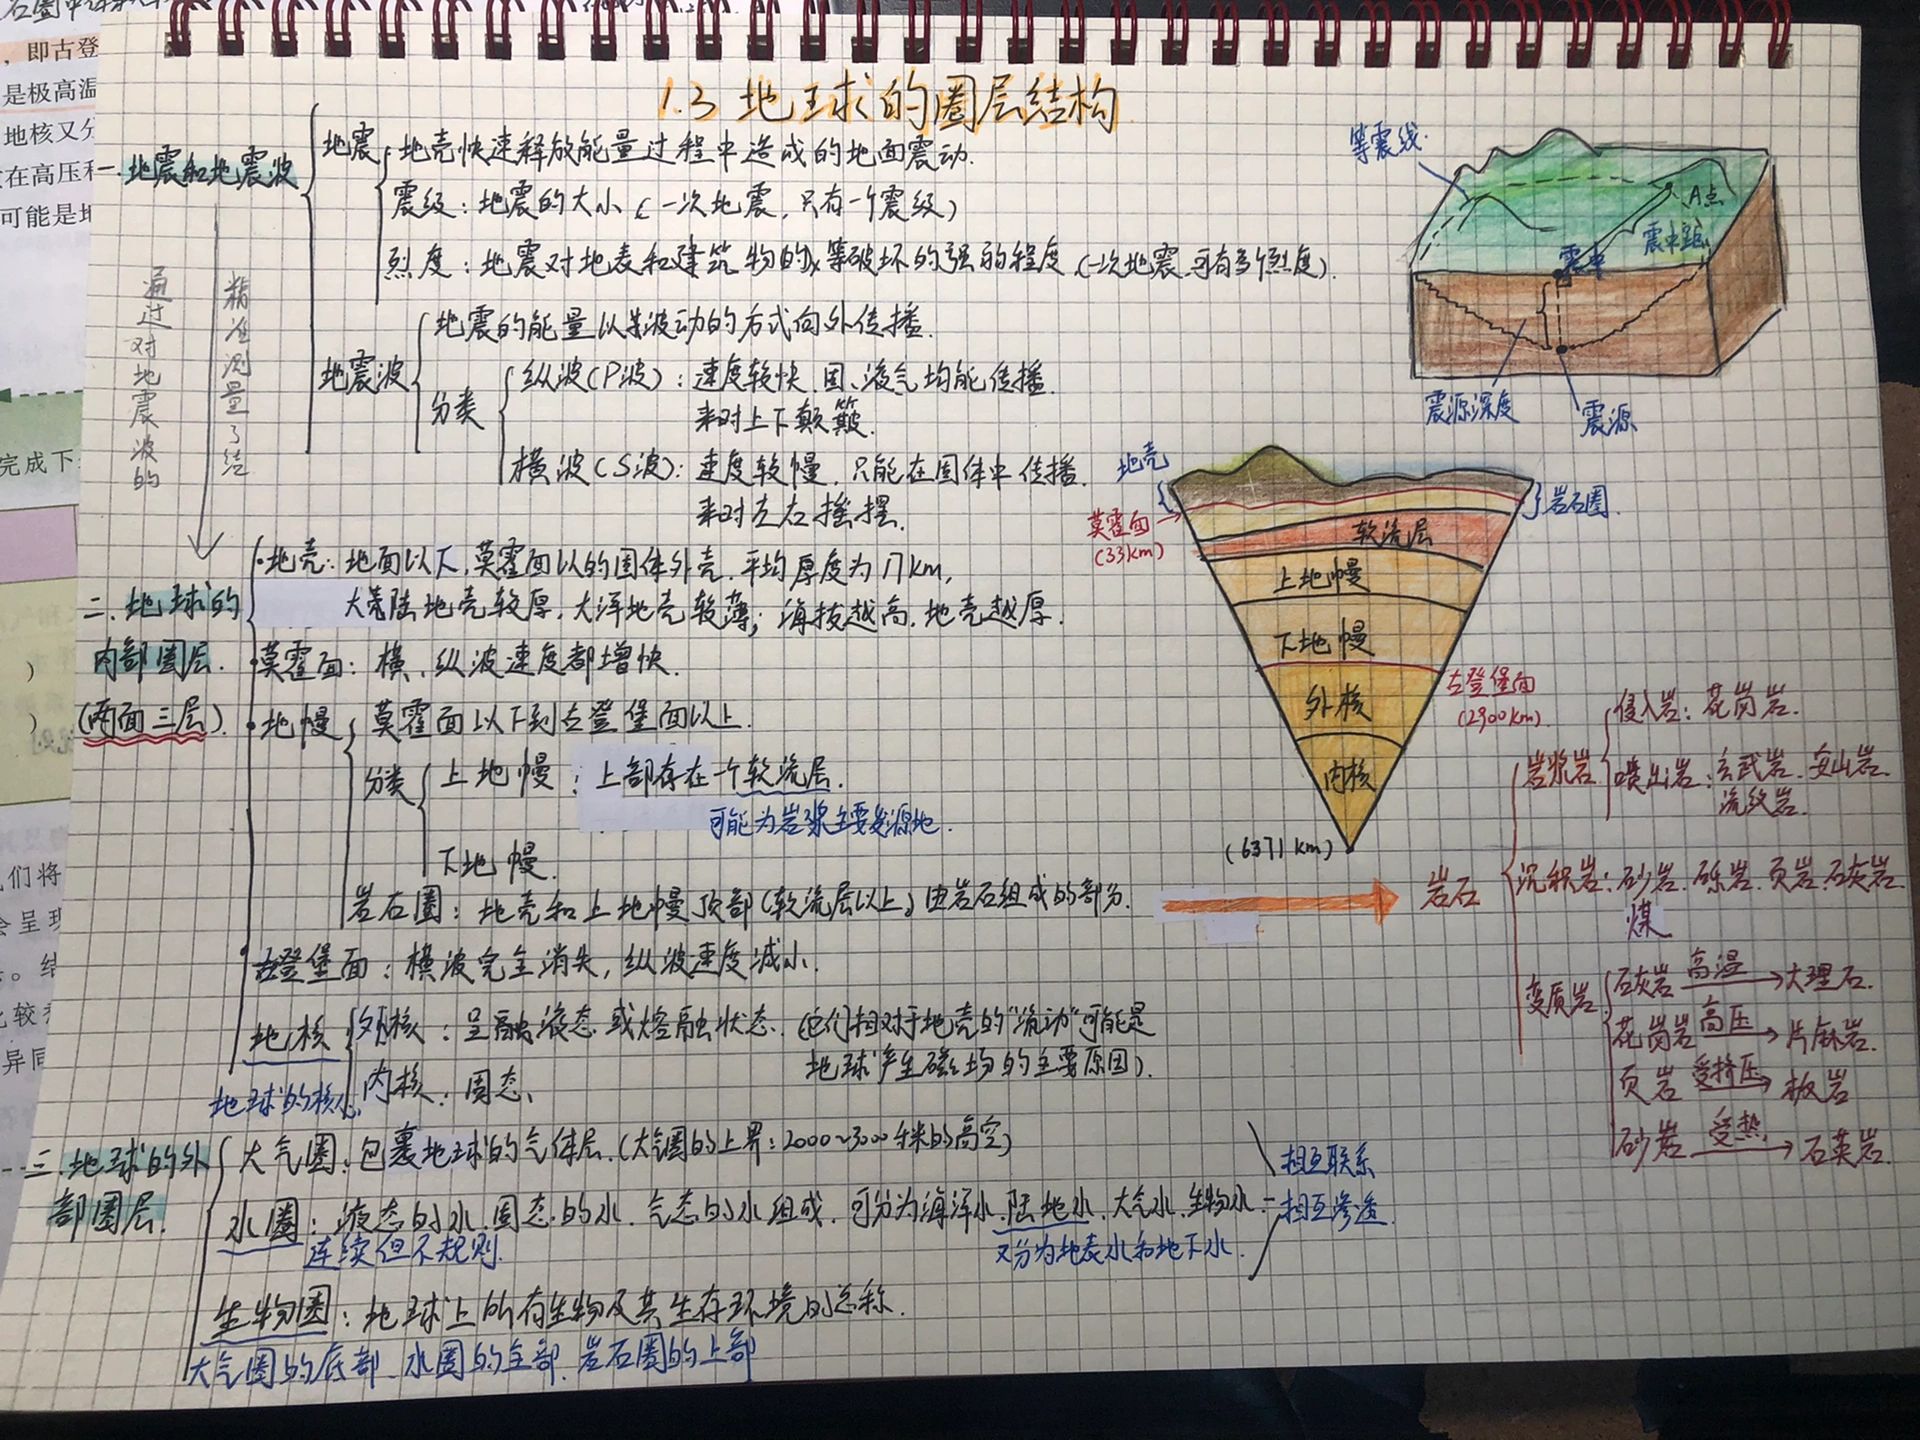 1.3 地球的圈层结构
一.地震和地震波
地震
地壳快速释放能量过程中造成的地面震动.
震级：地震的大小（一次地震，只有一个震级）
烈度：地震对地表和建筑物的等破坏的强的程度（一次地震可有多个烈度）.
地震波
地震的能量以波动的方式向外传播.
分类
纵波（P波）：速度较快.固、液气均能传播.
来时上下颠簸.
横波（S波）：速度较慢，只能在固体中传播.
来时左右摇摆.
通过对地震波的
精准测量了结
二.地球的
内部圈层.
（两面三层）.
地壳：地面以下，莫霍面以的固体外壳.平均厚度为17km，
大陆地壳较厚，大洋地壳较薄；海拔越高，地壳越厚.
莫霍面：横、纵波速度都增快.
地幔
莫霍面以下到古登堡面以上.
分类
上地幔：上部存在一个软流层.
可能为岩浆主要发源地.
下地幔.
岩石圈：地壳和上地幔顶部（软流层以上）由岩石组成的部分.
古登堡面：横波完全消失，纵波速度减小.
地核
地球的核心
外核：呈融液态或熔融状态.（他们相对于地壳的“流动”可能是
地球产生磁场的主要原因）.
内核：固态、
三.地球的外
部圈层.
大气圈：包裹地球的气体层.（大气圈的上界：2000~3000千米的高空）
水圈：液态的水.固态的水.气态的水组成.可分为海洋水.陆地水、大气水.生物水
连续但不规则.
又分为地表水和地下水.
生物圈：地球上所有生物及其生存环境的总称.
大气圈的底部、水圈的全部、岩石圈的上部
相互联系
相互渗透.
等震线
A点
震中距
震中
震源深度
震源
地壳
莫霍面
（33km）
岩石圈.
软流层
上地幔
下地幔
古登堡面
（2900km）
外核
内核
（6371km）
岩石
岩浆岩
侵入岩：花岗岩.
喷出岩：玄武岩、安山岩.
流纹岩.
沉积岩：砂岩.砾岩.页岩.石灰岩.
煤
变质岩
石灰岩 高温 大理石.
花岗岩 高压 片麻岩.
页岩 受挤压 板岩
砂岩 受热 石英岩.
，即古登
是极高温
地核又分
在高压和
可能是地
完成下
们将
会呈现
。结
比较
异同